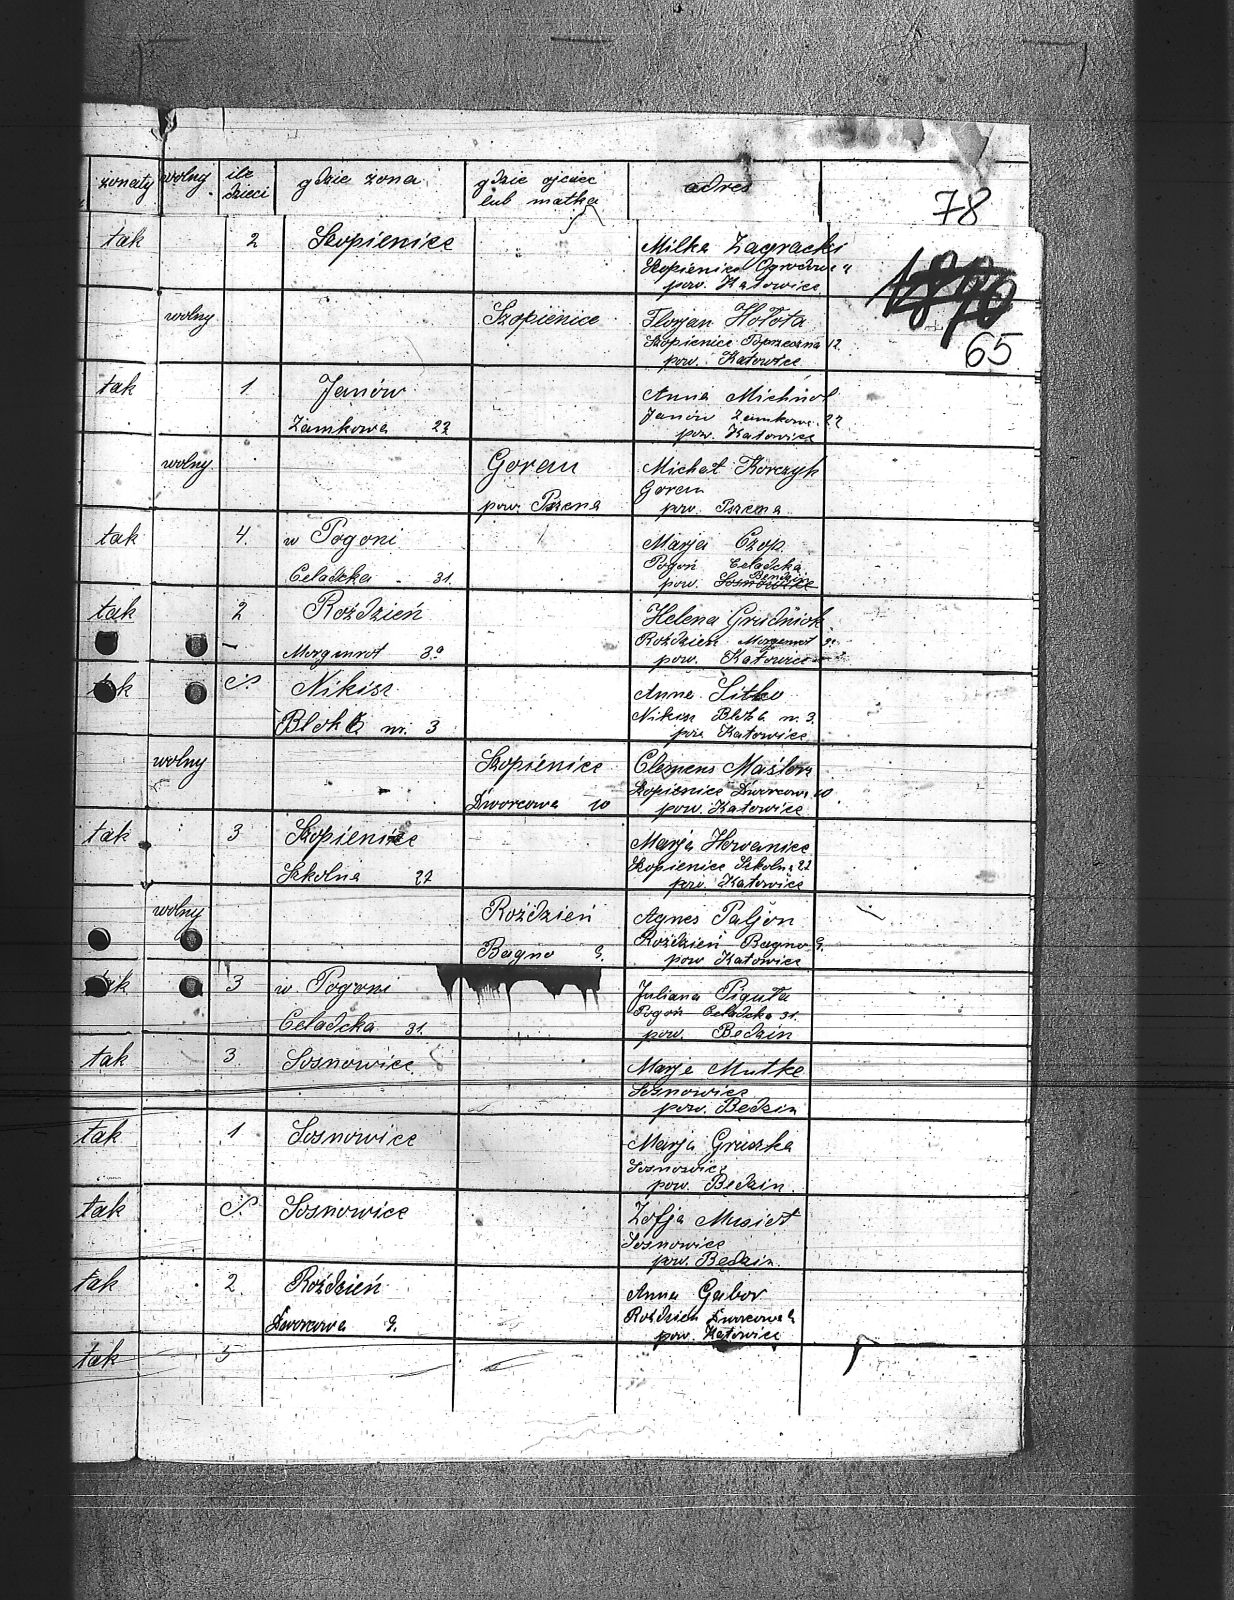 żonaty wolny ile dzieci gdzie żona gdzie ojciec lub matka adres
78
tak 2 Szopienice Milka Zagracki
Szopienice Ogrodowa 4
pow. Katowice
1890
65
wolny Szopienice Florjan Hołota
Szopienice Poprzeczna 12.
pow. Katowice
tak 1. Janów Anna Michnol
Zamkowa 22 Janów Zamkowa 22
pow. Katowice
wolny Goran Michał Korczyk
Goran
pow. Pszena pow. Pszena
tak 4. w Pogoni Marja Czop
Celadzka 31. Pogoń Celadzka
pow. Sosnowice Bendzin
tak 2 Roździeń Helena Grudniok
Morgenrot 39 Roździeń Morgenrot 39
pow. Katowice
tak Nikisz Anna Sitko
Blok 6 nr. 3 Nikisz Blok 6 nr. 3.
pow. Katowice
wolny Szopienice Clemens Maślora
Dworcowa 10 Szopienice Dworcowa 10
pow. Katowice
tak 3 Szopienice Marja Horvanice
Szkolna 22 Szopienice Szkolna 22
pow. Katowice
wolny Roździeń Agnes Paljon
Bagno 9. Roździeń Bagno 9.
pow. Katowice
tak 3 w Pogoni Juliana Piguła
Celadcka 31. Pogoń Celadcka 31.
pow. Będzin
tak 3. Sosnowice Marje Mutke
Sosnowice
pow. Będzin
tak 1 Sosnowice Marja Gruszka
Sosnowice
pow. Będzin
tak Sosnowice Zofja Musioł
Sosnowice
pow. Będzin
tak 2. Roździeń Anna Gabor
Dworcowa 9. Roździeń Dworcowa 9
pow. Katowice
tak 5